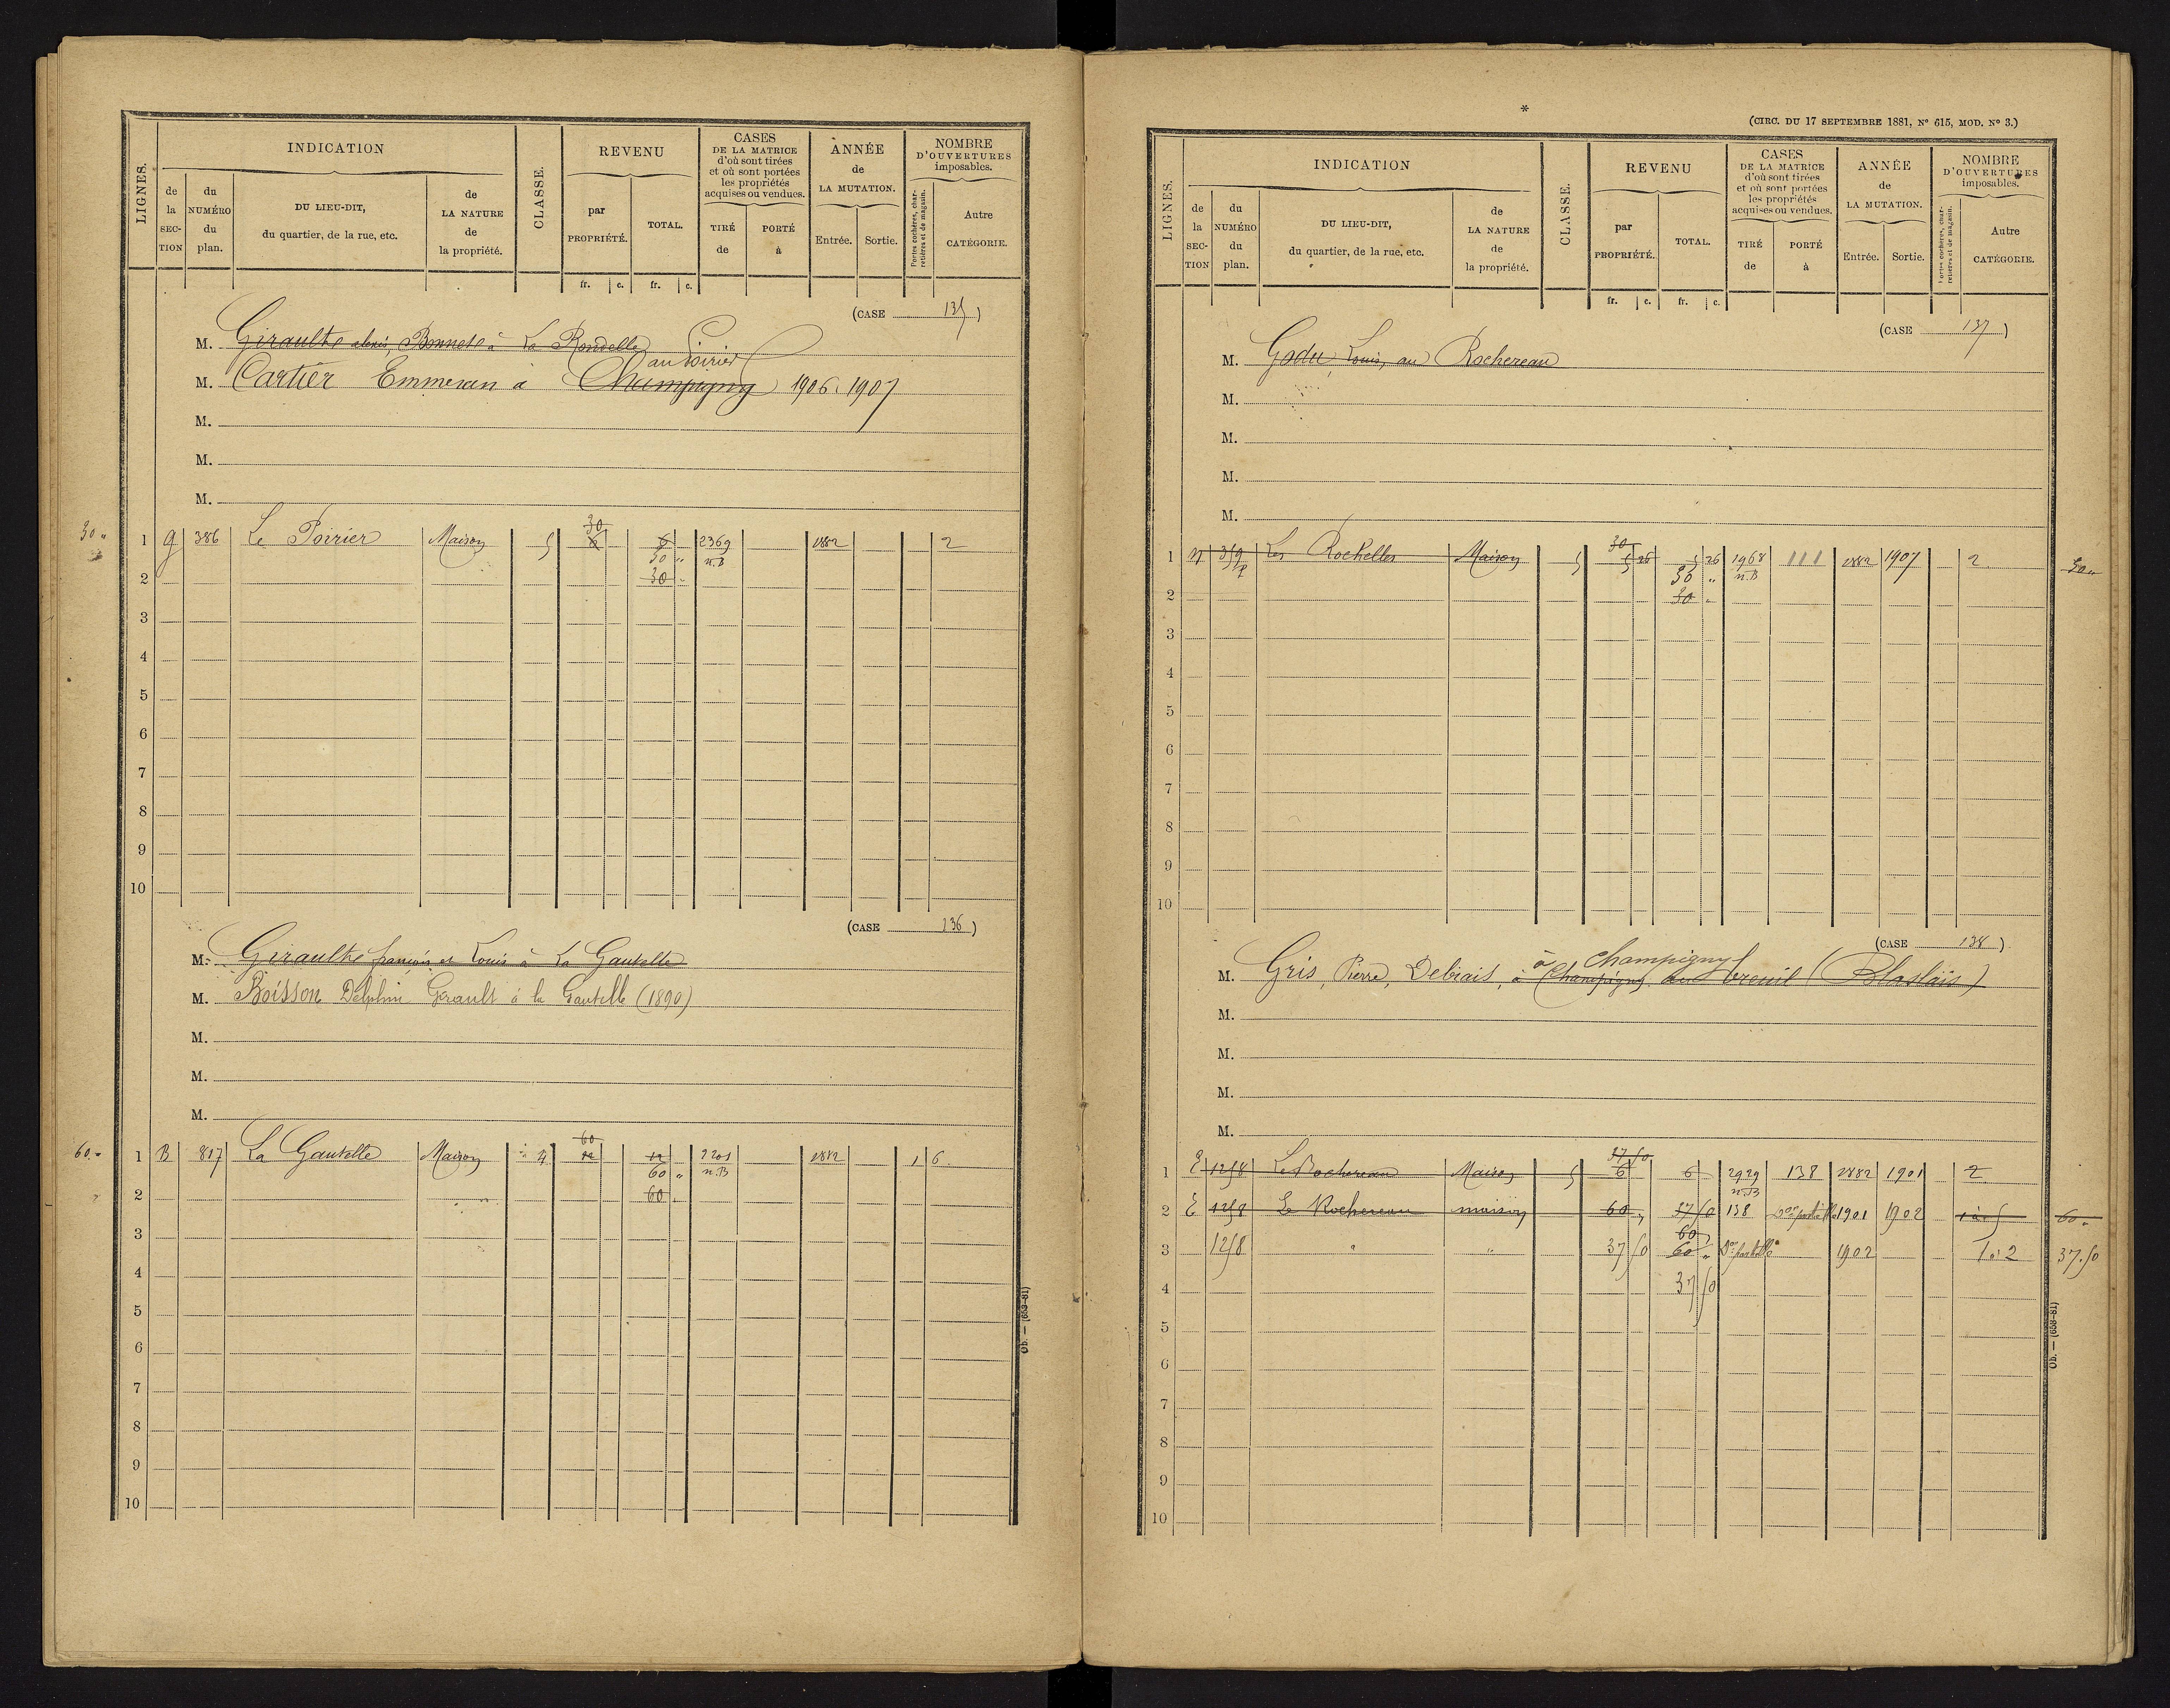 LIGNES.
INDICATION
de la SECTION
du NUMÉRO du plan.
DU LIEU-DIT, du quartier, de la rue, etc.
de LA NATURE de la propriété.
CLASSE.
REVENU
par PROPRIÉTÉ.
TOTAL.
fr. c. fr. c.
CASES DE LA MATRICE d'où sont tirées et où sont portées les propriétés acquises ou vendues.
TIRÉ de
PORTÉ à
ANNÉE de LA MUTATION.
Entrée. Sortie.
NOMBRE D'OUVERTURES imposables.
Portes cochères, charretières et de magasin.
Autre CATÉGORIE.
(CASE 135)
M. Girault alexis, Bonnet à La Rondelle
au Poirier
M. Cartier Emmeran à Champigny 1906. 1907
M.
M.
M.
30 "
30
1 G 386 Le Poirier Maison 5 6 6 2369 1882 2
30 " n.B
2 30 "
3
4
5
6
7
8
9
10
(CASE 136)
M. Girault françois et Louis à La Gautelle
M. Boisson Delphin Girault à la Gautelle (1890)
M.
M.
M.
60
60.- 1 B 817 La Gautelle Maison 4 12 12 2201 1882 1 6
60 " n.B
2 60 "
3
4
5
6
7
8
9
10
Ob. — (653-81)
*
(CIRC. DU 17 SEPTEMBRE 1881, N° 615, MOD. N° 3.)
LIGNES.
INDICATION
de la SECTION
du NUMÉRO du plan.
DU LIEU-DIT, du quartier, de la rue, etc.
de LA NATURE de la propriété.
CLASSE.
REVENU
par PROPRIÉTÉ.
TOTAL.
fr. c. fr. c.
CASES DE LA MATRICE d'où sont tirées et où sont portées les propriétés acquises ou vendues.
TIRÉ de
PORTÉ à
ANNÉE de LA MUTATION.
Entrée. Sortie.
NOMBRE D'OUVERTURES imposables.
Portes cochères, charretières et de magasin.
Autre CATÉGORIE.
(CASE 137)
M. Godu, Louis, au Rochereau
M.
M.
M.
M.
30
1 N 359 p Les Rochelles Maison 5 5 26 5 26 1968 111 1882 1907 2
30 " n.B 30 "
2 30 "
3
4
5
6
7
8
9
10
(CASE 138)
à Champigny
M. Gris, Pierre, Debiais, à Champigny au breuil (Blaslais)
M.
M.
M.
M.
37 50
1 E 1258 Le Rochereau Maison 5 6 6 2929 138 1882 1901 2
n.B
2 E 1258 Le Rochereau maison 60 " 37 50 138 1901 1902 1 à 5 60 "
60
3 1258 " " 37 50 60 " 1902 1 à 2 37.50
4 37 50
5
6
7
8
9
10
Ob. — (653-81)